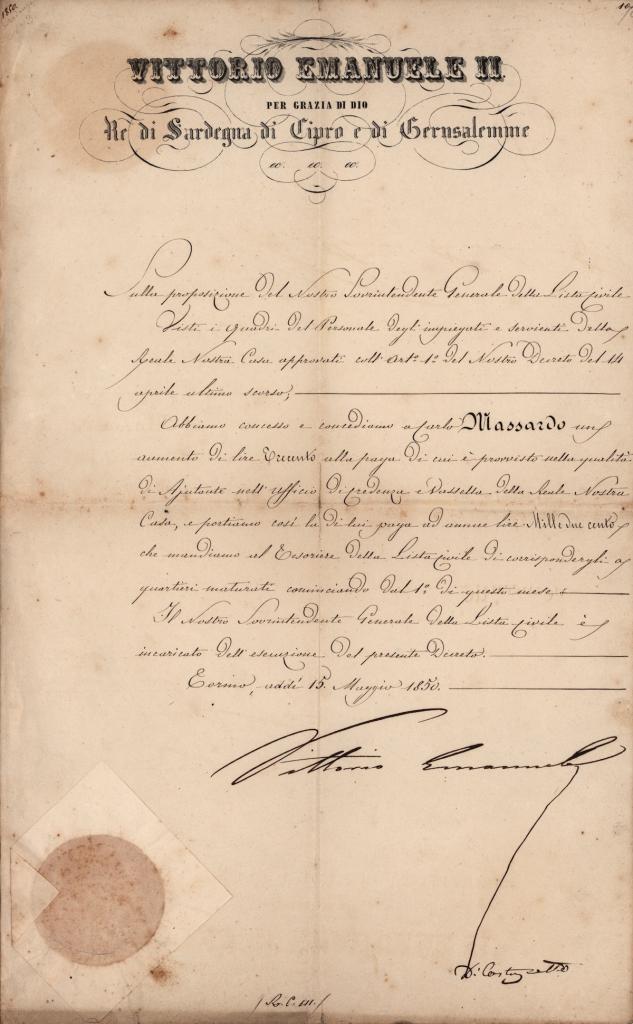 1850.
VITTORIO EMANUELE II
PER GRAZIA DI DIO
Re di Sardegna di Cipro e di Gerusalemme
ec. ec. ec.
Sulla proposizione del Nostro Sovrintendente Generale della Lista Civile
Visti i quadri del Personale degli impiegati e servienti della
Reale Nostra Casa approvati coll'art.º 1º del Nostro Decreto del 14
aprile ultimo scorso,
Abbiamo concesso e concediamo a Carlo Massardo un
aumento di lire Trecento alla paga di cui è provvisto nella qualità
di Ajutante nell'ufficio di Credenza e Vassella della Reale Nostra
Casa, e portiamo così la di lui paga ad annue lire Mille due cento
che mandiamo al Tesoriere della Lista Civile di corrispondergli a
quartieri maturati cominciando dal 1º di questo mese.
Il Nostro Sovrintendente Generale della Lista Civile è
incaricato dell'esecuzione del presente Decreto.
Torino, addì 15. Maggio 1850.
Vittorio Emanuele